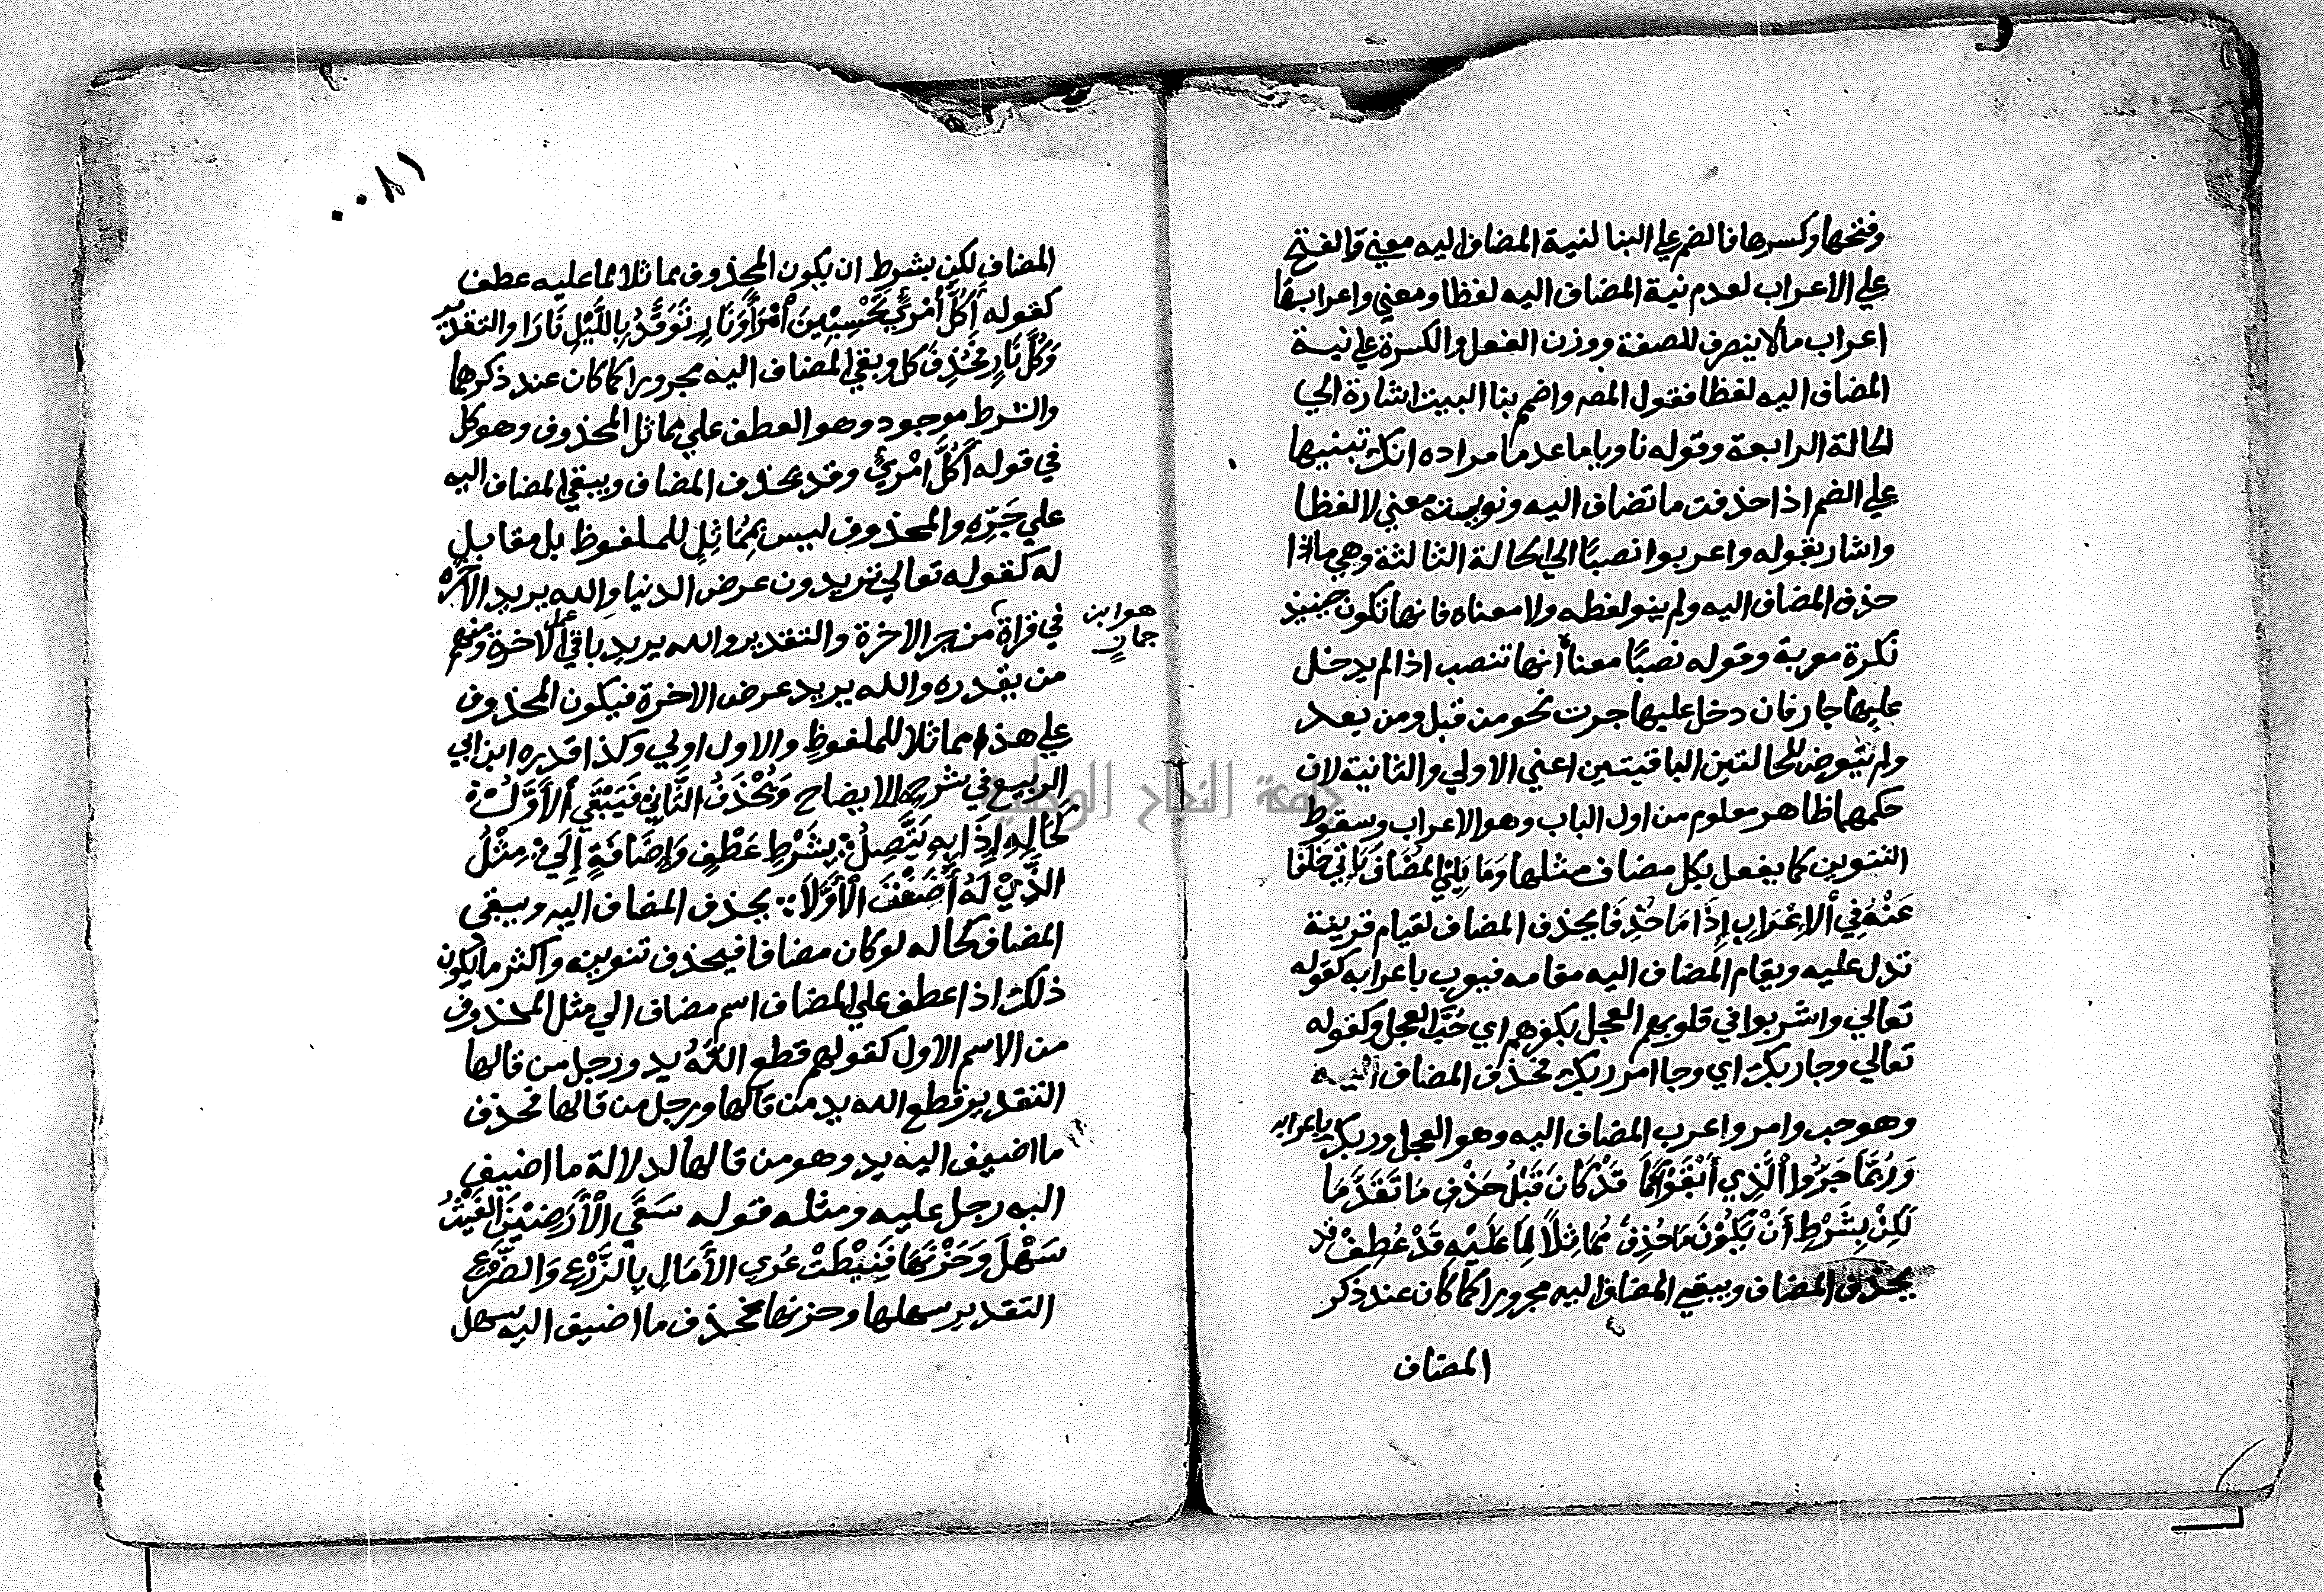 وفتحها وكسرها فالضم علي البنا لنية المضاف اليه معني والفتح
علي الاعراب لعدم نية المضاف اليه لفظا ومعني واعرابها
اعراب مالا ينصرف للصفة ووزن الفعل والكسرة علي نية
المضاف اليه لفظا فقول المصـ واضمم بنا البيت اشارة الي
الحالة الرابعة وقوله ناويا ما عدما مراده انك تبنيها
علي الضم اذا حذفت ما تضاف اليه ونويته معني لا لفظا
واشار بقوله واعربوا نصبًا الي الحالة الثالثة وهي ما اذا
حذف المضاف اليه ولم ينو لفظه ولا معناه فانها تكون حينيذ
نكرة معربة وقوله نصبًا معناه أنها تنصب اذا لم يدخل
عليها جار فان دخل عليها جرت نحو من قبل ومن بعد
ولم يتعوض للحالتين الباقيتين اعني الاولي والثانية لان
حكمهما ظاهر معلوم من اول الباب وهو الاعراب وسقوط
التنوين كما يفعل بكل مضاف مثلها وَمَا يَلِيْ المُضَافَ يَاتِي خَلَفَا
عَنْهُ فِي اْلاِعْرَابِ إِذَا مَا حُذِفَا يحذف المضاف لقيام قرينة
تدل عليه ويقام المضاف اليه مقامه فيعرب باعرابه كقوله
تعالي واشربوا في قلوبهم العجل بكفرهم اي حُبَّ العجل وكقوله
تعالي وجا ربك اي وجا امر ربك فحذف المضاف اليه
وهو حب وامر واعرب المضاف اليه وهو العجل وربك باعرابه
وَرُبَّمَا جَرُّوا اْلَّذِي أَبْقَوْا كَمَا قَدْ كَانَ قَبْلَ حَذْفِ مَا تَقَدَّمَا
لَكِنْ بِشَرْطِ أَنْ يَكُوْنَ مَا حُذِفْ مُمَاثِلاً لِمَا عَلَيْهِ قَدْ عُطِفْ قد
يحذف المضاف ويبقي المضاف اليه مجرورا كما كان عند ذكر
المضاف
٠٠٨١
المضافِ لكن بشرط ان يكون المحذوف مماثلا لما عليه عطف
كقوله أَكُلَّ أَمْرِيٍ تَحْسِبِيْنَ أَمْرَأً وَنَارٍ تَوَقَّدُ بِاللَّيْلِ نَارَا والتقدير
وَكُلَّ نَارٍ فحُذِفَ كل وبقي المضاف اليه مجرورا كما كان عند ذكرها
والشرط موجود وهو العطف علي مماثل المحذوف وهو كل
في قوله أَكُلَّ امْرِيٍ وقد يحذف المضاف ويبقي المضاف اليه
علي جَرِّهِ والمحذوف ليس بِمُمَاثِلٍ للملفوظ بل مقابل
له كقوله تعالي تريدون عرض الدنيا والله يريد الاخرة
في قراة من جر الاخرة والتقدير والله يريد باقي الاخرة ومنهم
هو ابن
جمازٍ
من يقدره والله يريد عرض الاخرة فيكون المحذوف
علي هذا مماثلا للملفوظ والاول اولي وكذا قدره ابن ابي
الربيع في شرحه الايضاح وَيُحْذَفُ الثَّانِي فَيَبْقَي اْلأَوَّلُ
كَحَالِهِ إِذَا بِهِ يَتَّصِلُ بِشَرْطِ عَطْفٍ وَإِضَافَةٍ إِلَي مِثْلِ
الَّذِيْ لَهُ أَضَفْتَ اْلأَوَّلاَ يحذف المضاف اليه ويبقي
المضاف كحاله لو كان مضافا فيحذف تنوينه واكثر ما يكون
ذلك اذا عطف علي المضاف اسم مضاف الي مثل المحذوف
من الاسم الاول كقولهم قطع اللهُ يد ورجل من قالها
التقدير قطع الله يد من قالها ورجل من قالها فحذف
ما اضيف اليه يد وهو من قالها لدلالة ما اضيف
اليه رجل عليه ومثله قوله سَقَي اْلأَرَضِيْنَ الغَيْثُ
سَهْلَ وَحَزْنَهَا فَنِيْطَتْ عُرَي الأَمَالِ بِالزَّرْعِ وَالضَّرْعِ
التقدير سهلها وحزنها فحذف ما اضيف اليه سهل
جامعة النجاح الوطنية